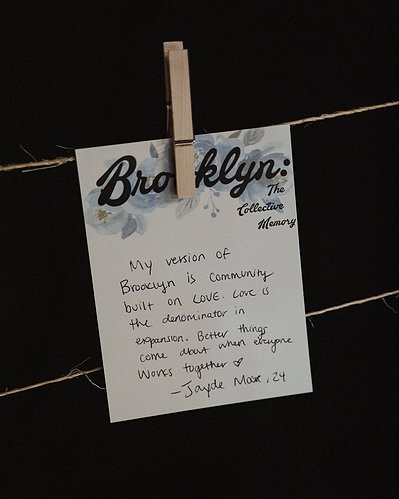 Brooklyn:
The
Collective
Memory
My version of
Brooklyn is community
built on LOVE. Love is
the denominator in
expansion. Better things
come about when everyone
works together ♡
- Jayde Moore, 24